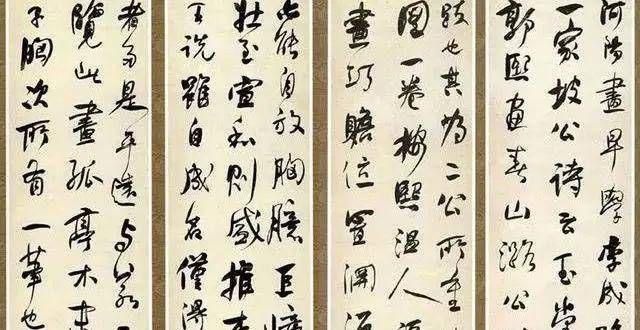 河陽畫早學李成
一家坡公詩云玉堂
郭熙畫春山公
跋也其為二公所重
圖一卷熙溫人
畫巧贍位置淵
能自放胸臆巨
壯至宣和則盛推
說雖自成名僅得
者多是平遠与
覽此畫孤亭木
子胸次所有一華也